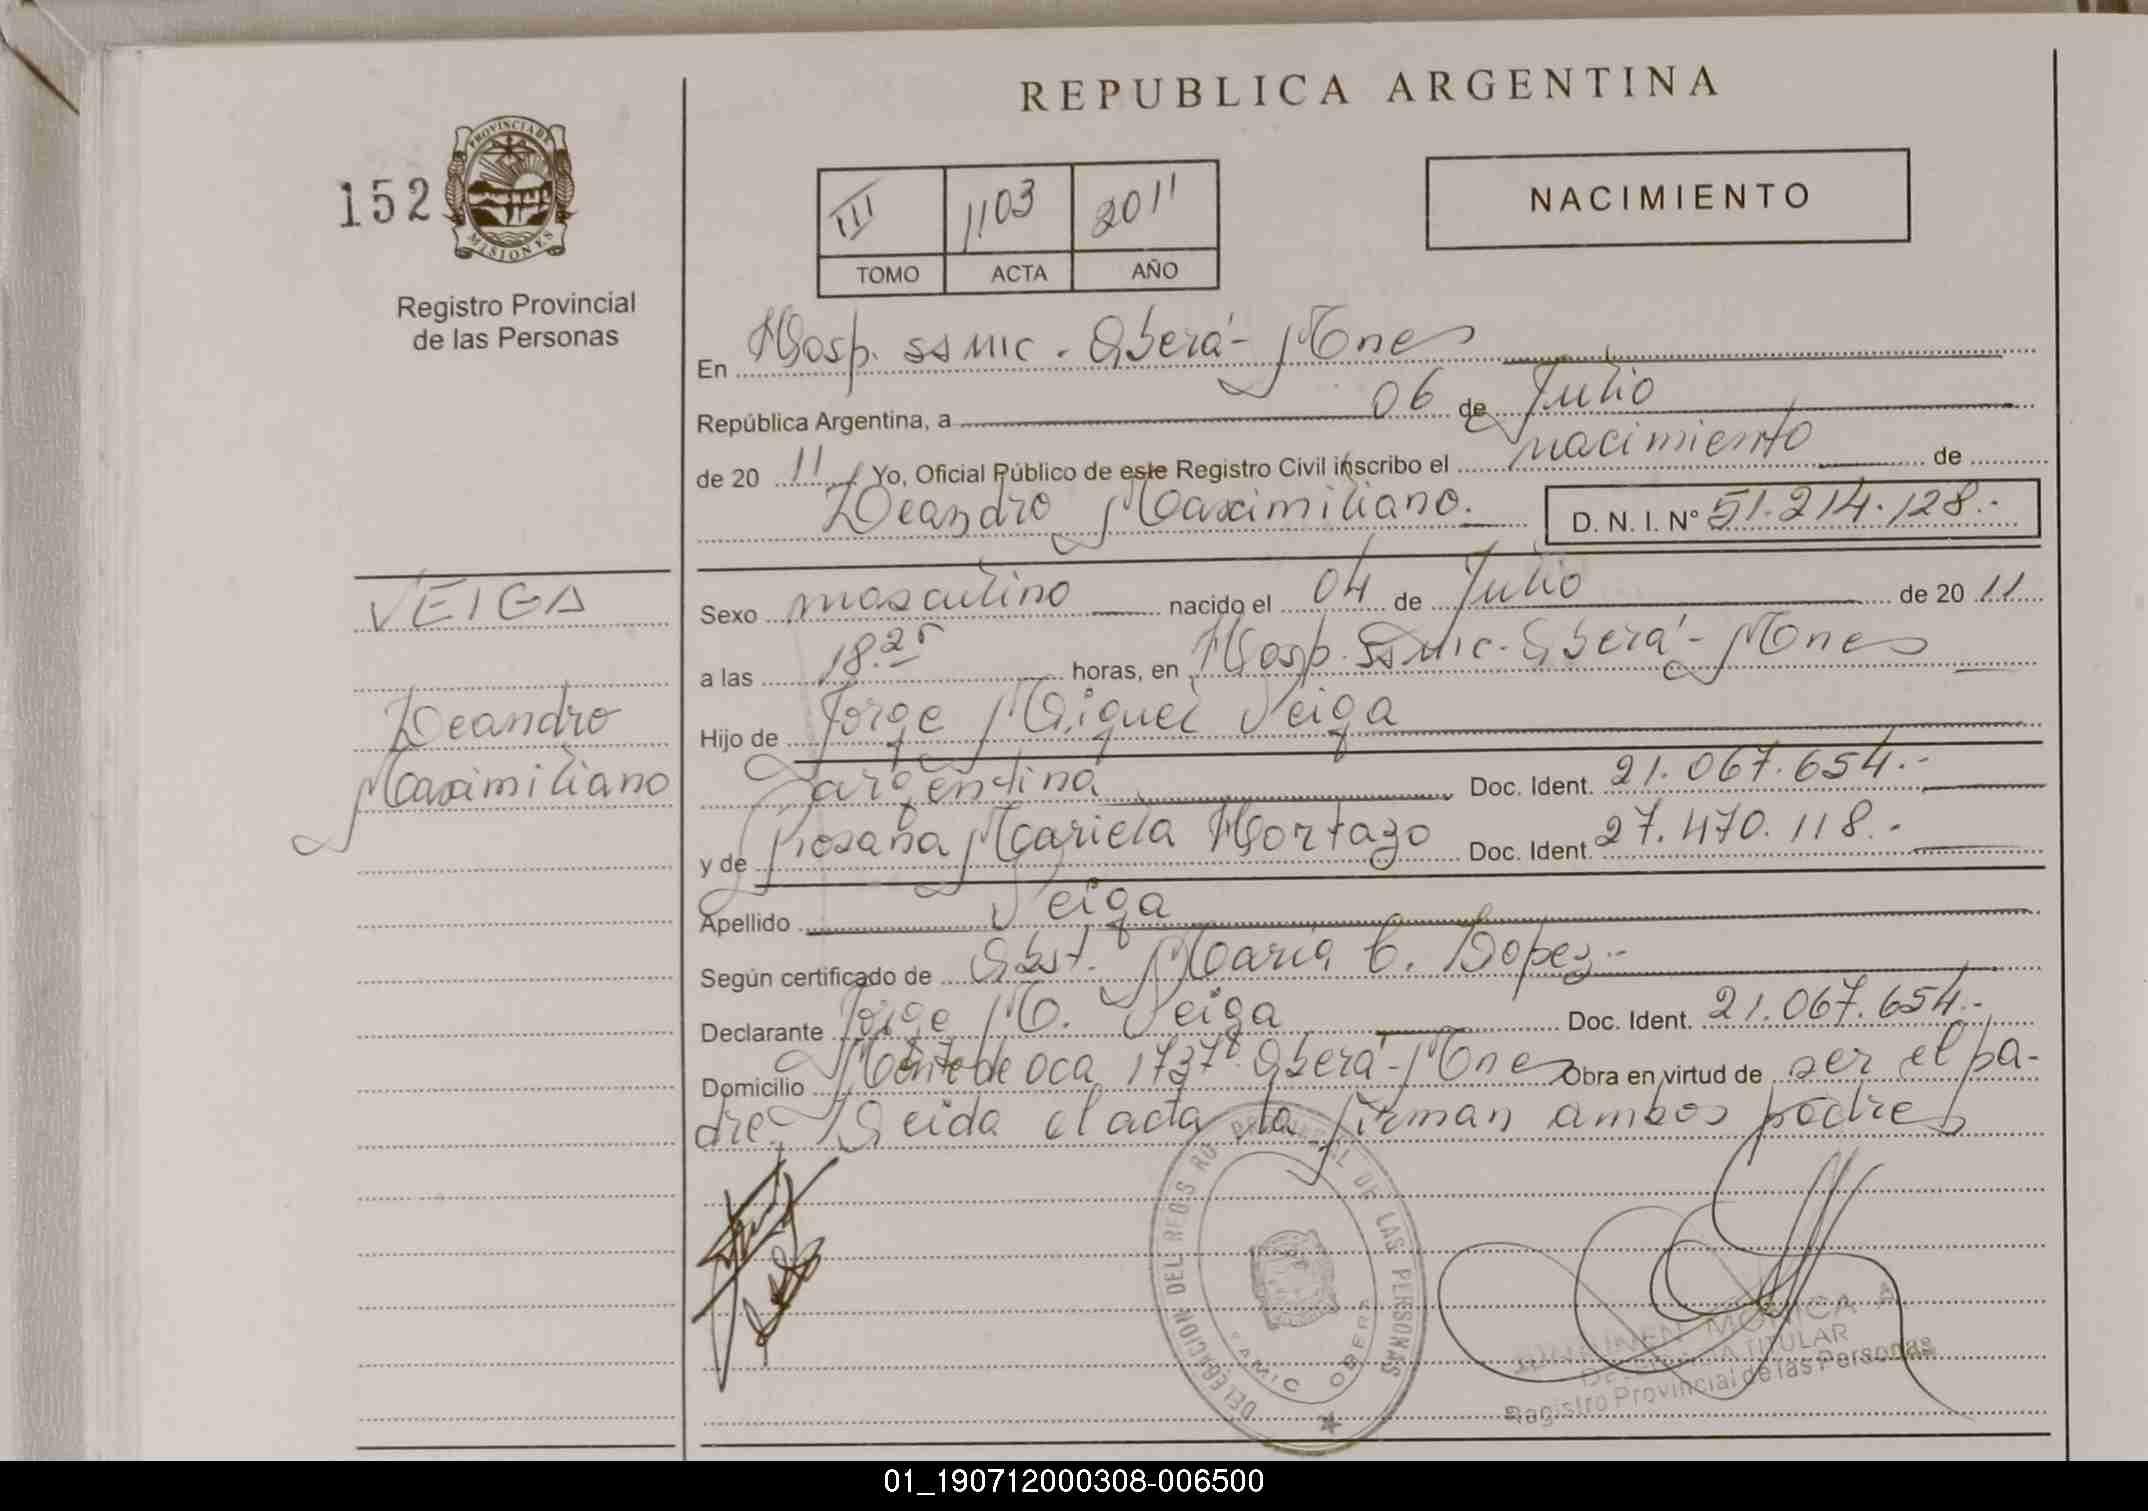 REPUBLICA ARGENTINA
152
PROVINCIA DE
MISIONES
Registro Provincial
de las Personas
III 1103 2011
TOMO ACTA AÑO
NACIMIENTO
En Hosp. SSMIC. Oberá - Mnes
República Argentina, a 06 de Julio
de 20 11 Yo, Oficial Público de este Registro Civil inscribo el nacimiento de
Leandro Maximiliano. D. N. I. N° 51.214.128.-
VEIGA
Leandro
Maximiliano
Sexo masculino nacido el 04 de Julio de 20 11
a las 18.25 horas, en Hosp. SSMIC - Oberá - Mnes
Hijo de Jorge Miguel Veiga
argentina Doc. Ident. 21.067.654.-
y de Rosana Mariela Hortazo Doc. Ident. 27.470.118.-
Apellido Veiga
Según certificado de Obst. María C. Lopez.-
Declarante Jorge M. Veiga Doc. Ident. 21.067.654.-
Domicilio Montes de oca 1737 Oberá - Mnes Obra en virtud de ser el pa-
dre. Leida el acta la firman ambos padres
DELEGACION DEL REGISTRO PROVINCIAL DE LAS PERSONAS
SAMIC OBERA
MONICA A.
TITULAR
Registro Provincial de las Personas
01_190712000308-006500